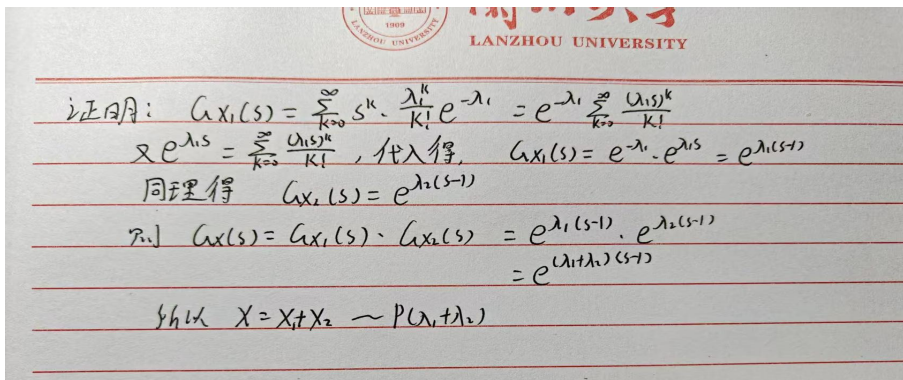 1909
LANZHOU UNIVERSITY
LANZHOU UNIVERSITY
证明: Gx₁(s) = ∑_{k=0}^{∞} s^k · λ₁^k/k! e^{-λ₁} = e^{-λ₁} ∑_{k=0}^{∞} (λ₁s)^k/k!
又 e^{λ₁s} = ∑_{k=0}^{∞} (λ₁s)^k/k! , 代入得, Gx₁(s) = e^{-λ₁}·e^{λ₁s} = e^{λ₁(s-1)}
同理得 Gx₂(s) = e^{λ₂(s-1)}
则 Gx(s) = Gx₁(s) · Gx₂(s) = e^{λ₁(s-1)} · e^{λ₂(s-1)}
= e^{(λ₁+λ₂)(s-1)}
所以 X = X₁+X₂ ~ P(λ₁+λ₂)